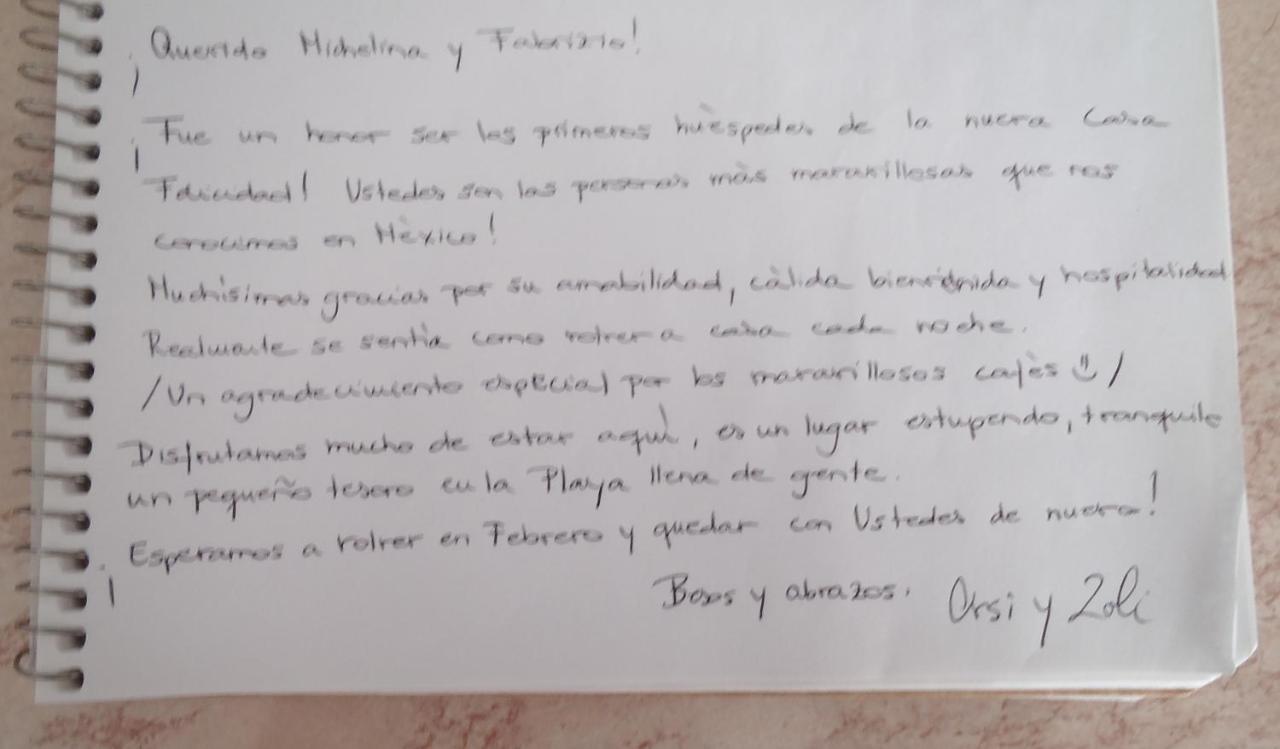 ¡Querido Michelina y Fabrizio!
¡Fue un honor ser los primeros huèspedes de la nueva Casa
Felicidad! Ustedes son las personas màs maravillosas que nos
conocimos en Mèxico!
Muchìsimas gracias por su amabilidad, càlida bienvenida y hospitalidad
Realmente se sentìa como volver a casa cada noche.
/Un agradecimiento especial por los maravillosos cafès /
Disfrutamos mucho de estar aquì, es un lugar estupendo, tranquilo
un pequeño tesoro en la Playa llena de gente.
¡Esperamos a volver en Febrero y quedar con Ustedes de nuevo!
Besos y abrazos. Orsi y Zoli